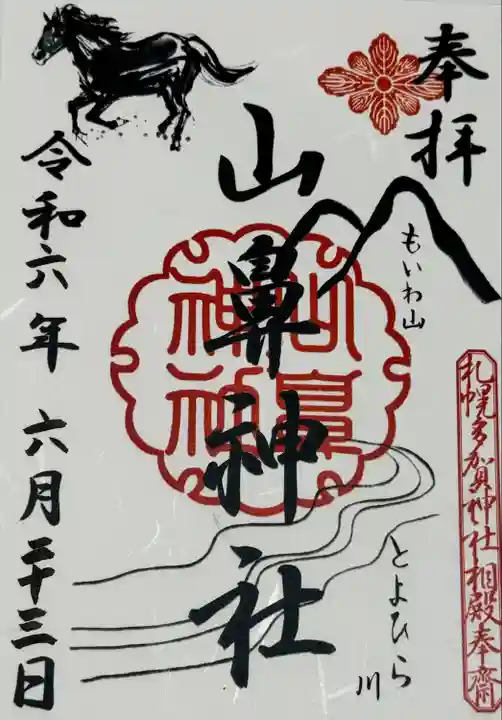 奉拝
もいわ山
札幌多加具神社相殿奉齋
山鼻神社
山鼻神社
とよひら川
令和六年 六月二十三日